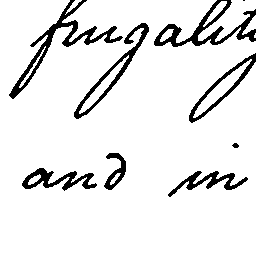 frugality
and in